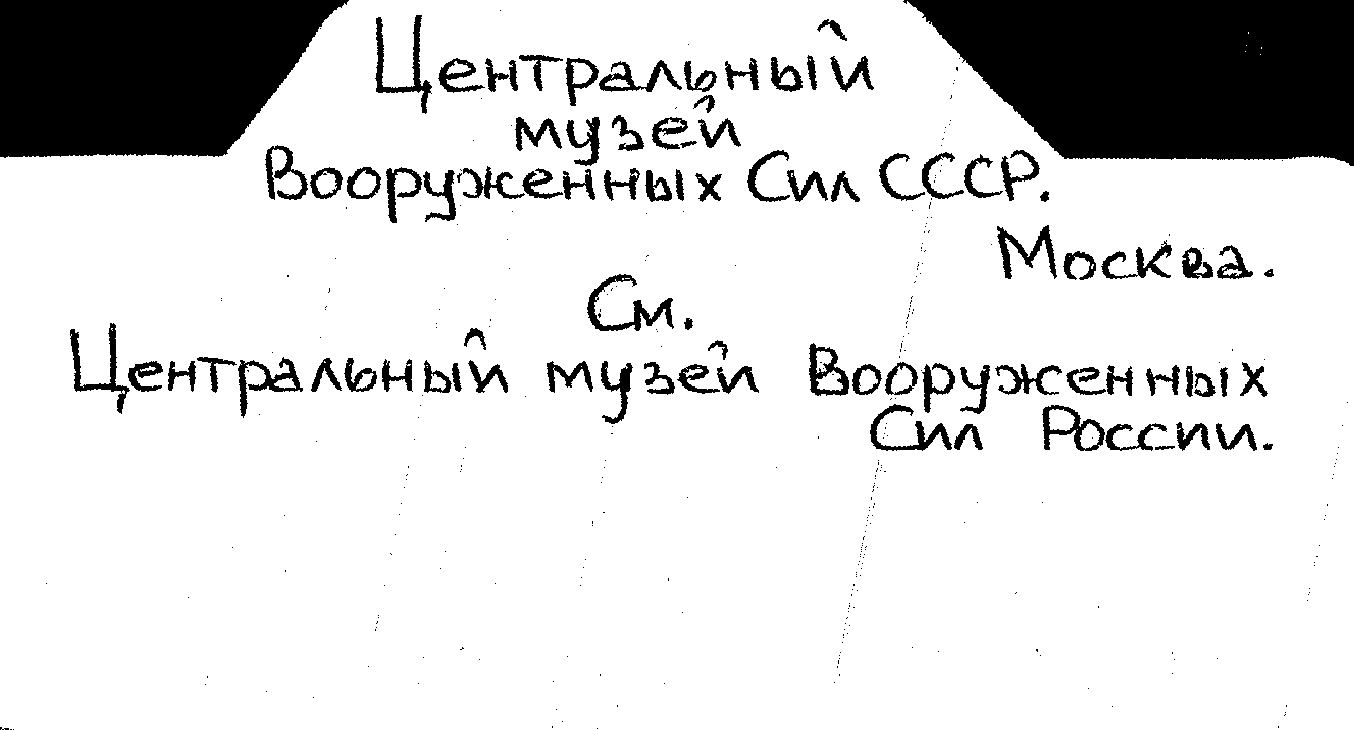 Центральный
музей
Вооруженных Сил СССР.
Москва.
См.
Центральный музей Вооруженных
Сил России.